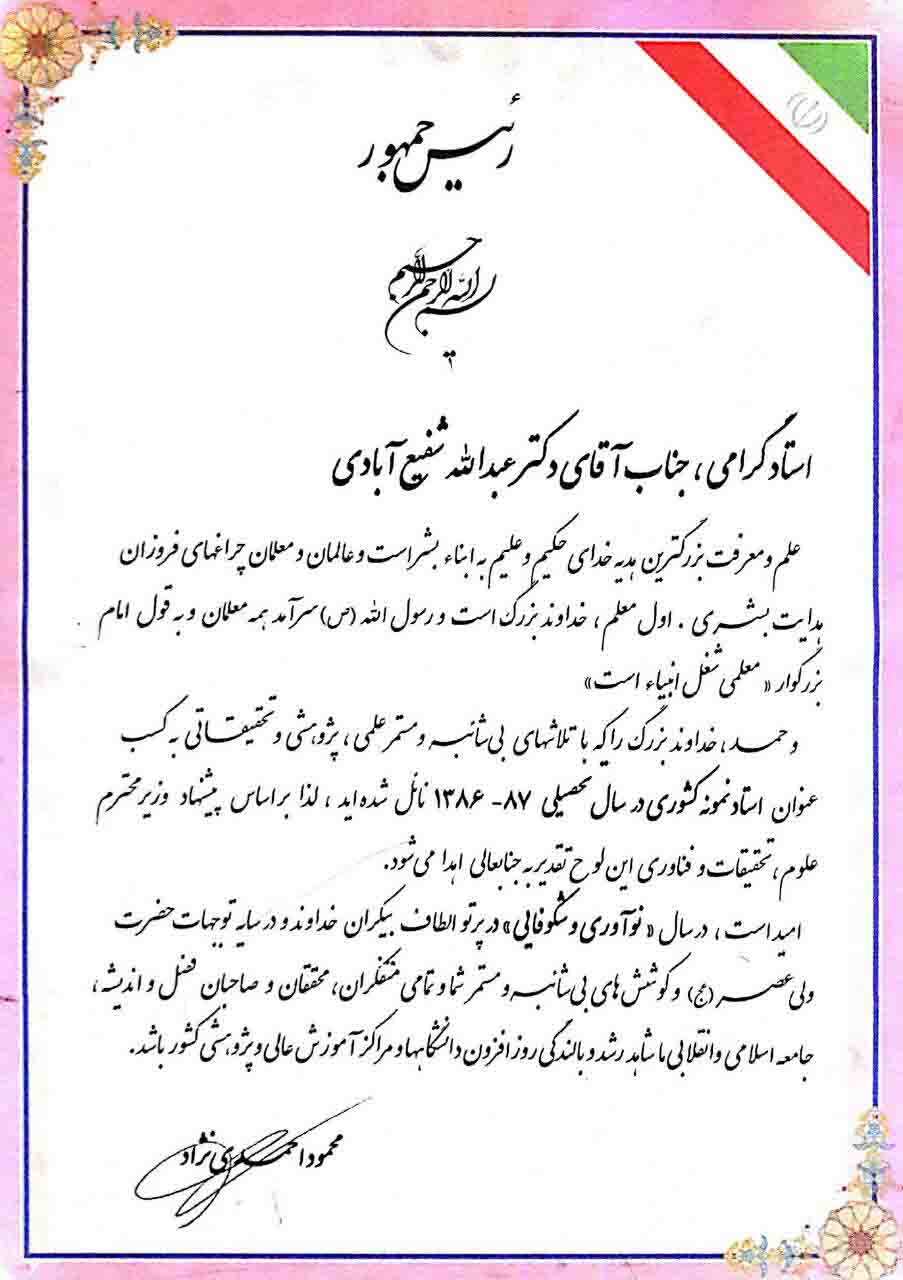 رئیس جمهور
بسم الله الرحمن الرحیم
استاد گرامی ، جناب آقای دکتر عبدالله شفیع آبادی
علم و معرفت بزرگترین هدیه خدای حکیم و علیم به ابناء بشر است و عالمان و معلمان چراغهای فروزان
هدایت بشری . اول معلم ، خداوند بزرگ است و رسول الله (ص) سرآمد همه معلمان و به قول امام
بزرگوار « معلمی شغل انبیاء است »
و حمد ، خداوند بزرگ را که با تلاشهای بی شائبه و مستمر علمی ، پژوهشی و تحقیقاتی به کسب
عنوان استاد نمونه کشوری در سال تحصیلی ۸۷- ۱۳۸۶ نائل شده اید ، لذا بر اساس پیشنهاد وزیر محترم
علوم ، تحقیقات و فناوری این لوح تقدیر به جنابعالی اهدا می شود.
امید است ، در سال « نوآوری و شکوفایی » در پرتو الطاف بیکران خداوند و در سایه توجهات حضرت
ولی عصر (عج) و کوشش های بی شائبه و مستمر شما و تمامی متفکران ، محققان و صاحبان فضل و اندیشه ،
جامعه اسلامی و انقلابی ما شاهد رشد و بالندگی روز افزون دانشگاهها و مراکز آموزش عالی و پژوهشی کشور باشد.
محمود احمدی نژاد